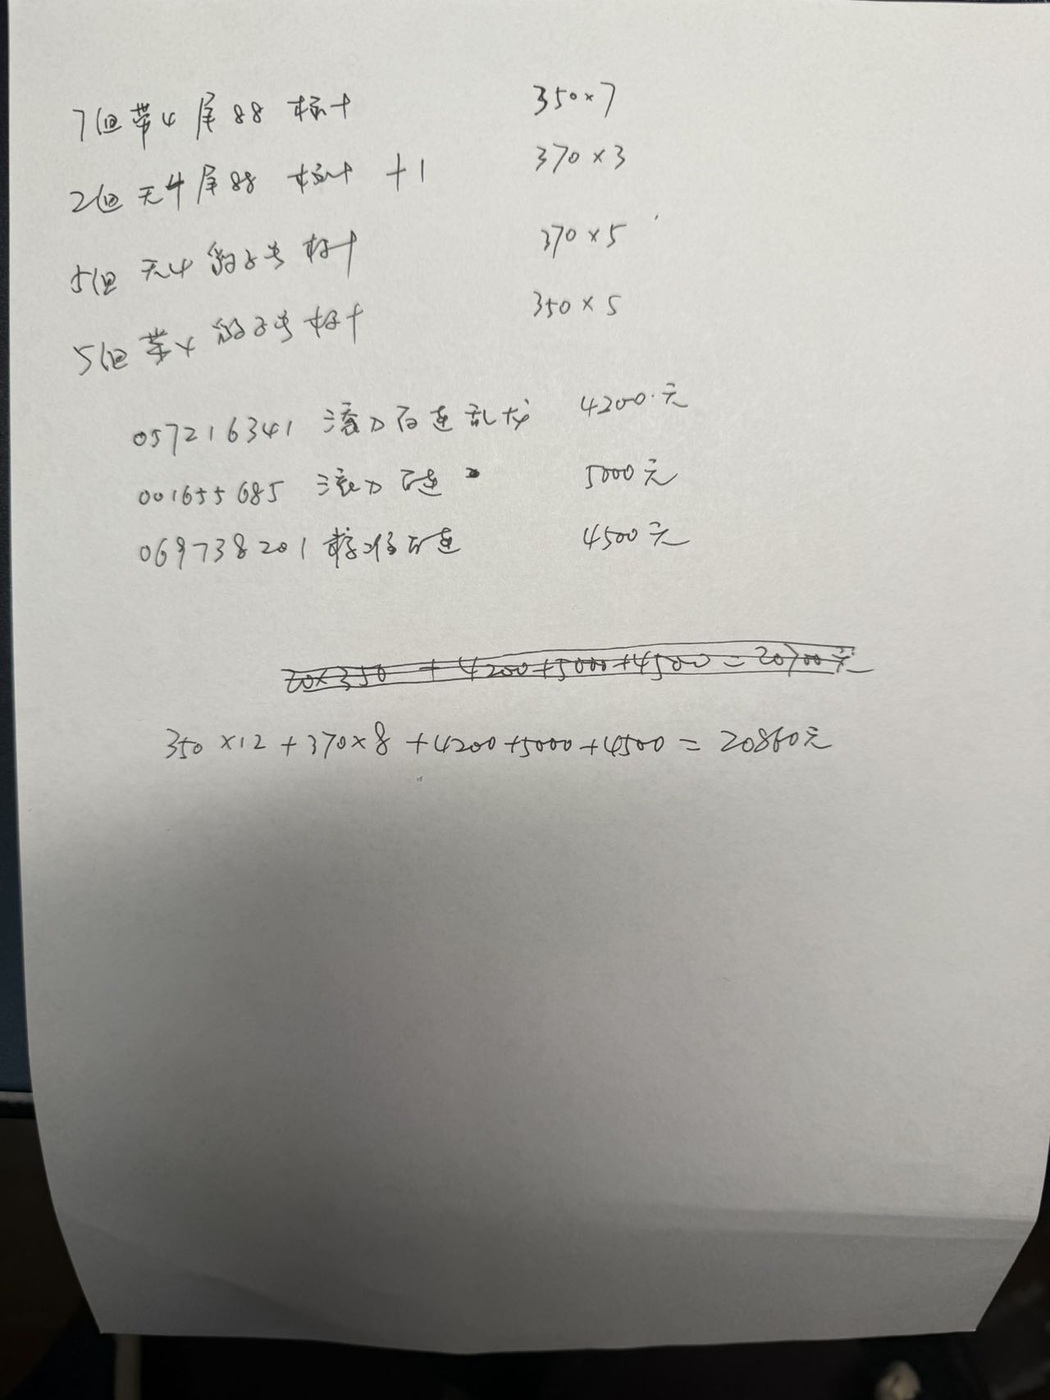 7组带4尾88 标十 350×7
2组无4尾88 标十 +1 370×3
5组 无4 豹子号 标十 370×5
5组 带4 豹子号 标十 350×5
057216341 滚刀百连乱龙 4200元
001655685 滚刀百连 5000元
069738201 标准百连 4500元
20×350 + 4200+5000+4500=20700元
350×12+370×8+4200+5000+4500=20860元